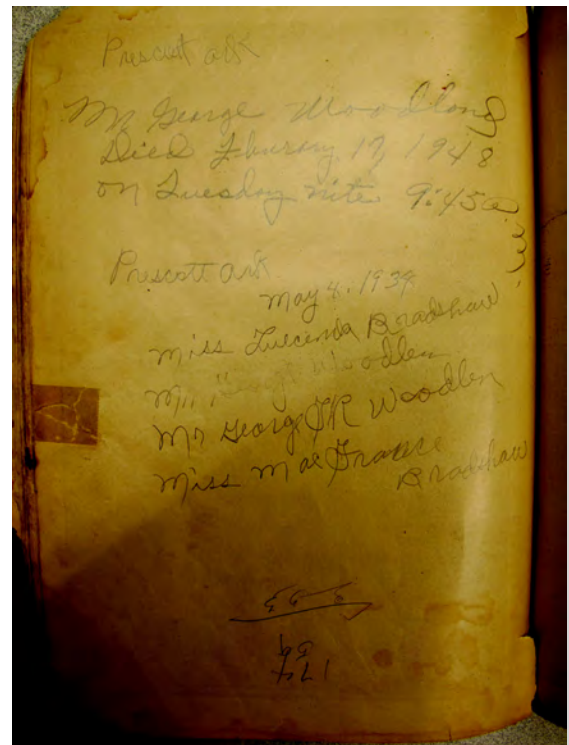 Prescott ark
Mr George Woodlong
Died Fburary 17, 1948
on Tuesday nite 9:45
Prescott ark
May 4. 1934
Miss Luecinda Bradshaw
Mr George Woodlen
Mr George JR Woodlen
Miss Mae
Bradshaw